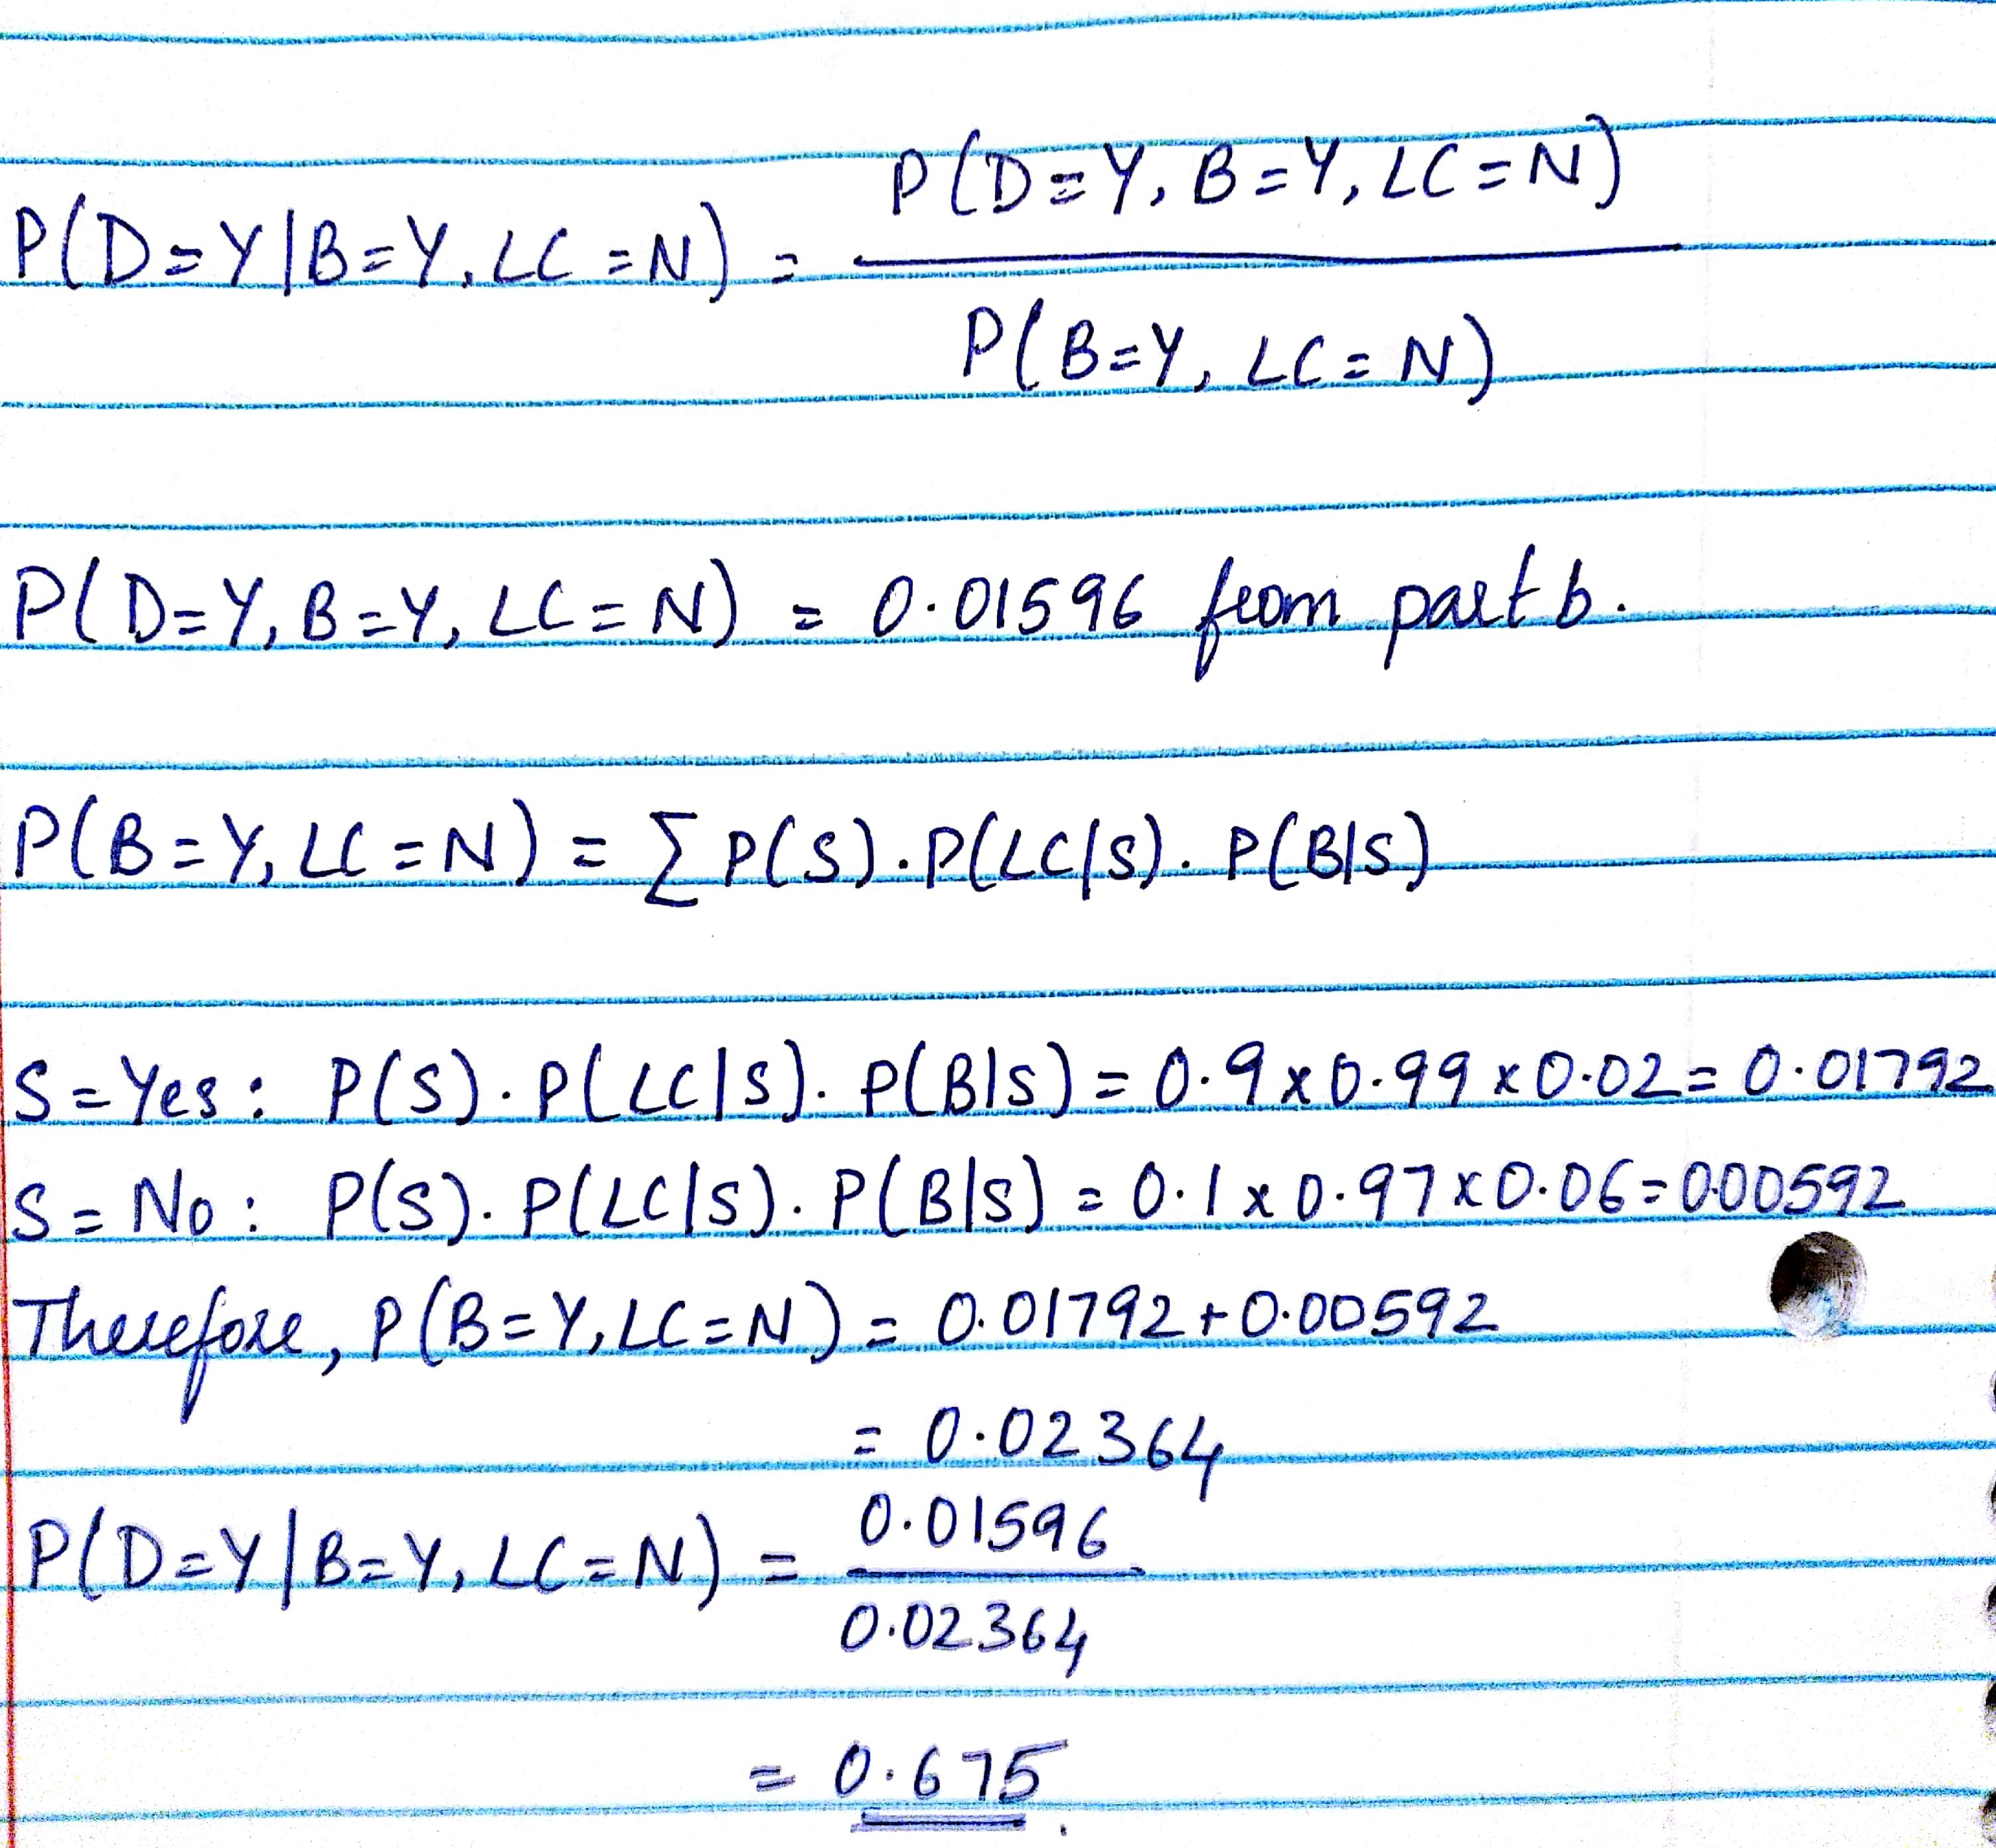 P(D=Y, B=Y, LC=N)
P(D=Y|B=Y, LC=N) =
P(B=Y, LC=N)
P(D=Y, B=Y, LC=N) = 0.01596 from part b.
P(B=Y, LC=N) = ∑ P(S).P(LC|S). P(B|S)
S=Yes: P(S).P(LC|S). P(B|S) = 0.9 x 0.99 x 0.02 = 0.01792
S=No: P(S). P(LC|S). P(B|S) = 0.1 x 0.97 x 0.06 = 0.00592
Therefore, P(B=Y, LC=N) = 0.01792 + 0.00592
= 0.02364
P(D=Y|B=Y, LC=N) = 0.01596
0.02364
= 0.675.